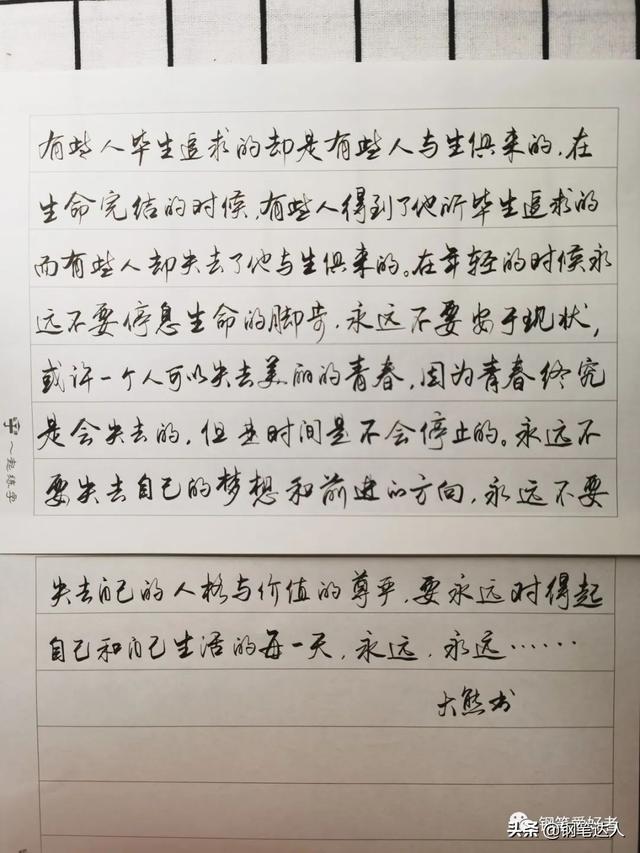 有些人毕生追求的却是有些人与生俱来的,在
生命完结的时候,有些人得到了他所毕生追求的
而有些人却失去了他与生俱来的。在年轻的时候永
远不要停息生命的脚步,永远不要安于现状,
或许一个人可以失去美丽的青春,因为青春终究
是会失去的,但是时间是不会停止的。永远不
要失去自己的梦想和前进的方向,永远不要
失去自己的人格与价值的尊严,要永远对得起
自己和自己生活的每一天,永远,永远……
大熊书
一起练字
钢笔爱好者
头条@钢笔达人